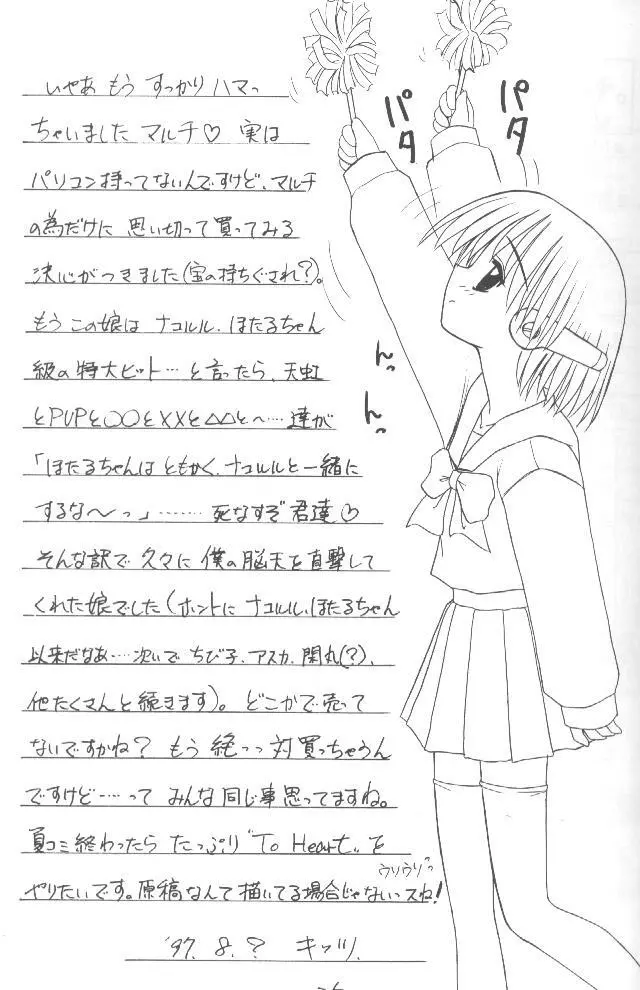 いやあ もう すっかり ハマっ
ちゃいました マルチ♡ 実は
パソコン持ってないんですけど、マルチ
の為だけに 思い切って買ってみる
決心がつきました(宝の持ちぐされ?)。
もう この娘は ナコルル、ほたるちゃん
級の 特大ヒット…と言ったら、天虹
とPVPと〇〇と××と△△と〜…達が
「ほたるちゃんは ともかく、ナコルルと一緒に
するな〜っ」……… 死なすぞ 君達♡
そんな訳で 久々に 僕の脳天を直撃して
くれた娘でした(ホントに ナコルル、ほたるちゃん
以来だなあ…次いで ちび子、アスカ、関丸(?)、
他たくさんと続きます)。どこかで売って
ないですかね? もう 絶っっ対買っちゃうん
ですけど……って みんな同じ事思ってますね。
夏コミ終わったら たっぷり "To Heart" を
やりたいです。原稿なんて描いてる場合じゃないっスね!
ウリウリ〜っ
'97. 8. ? キッツ.
パタ
パタ
んっ
んっ